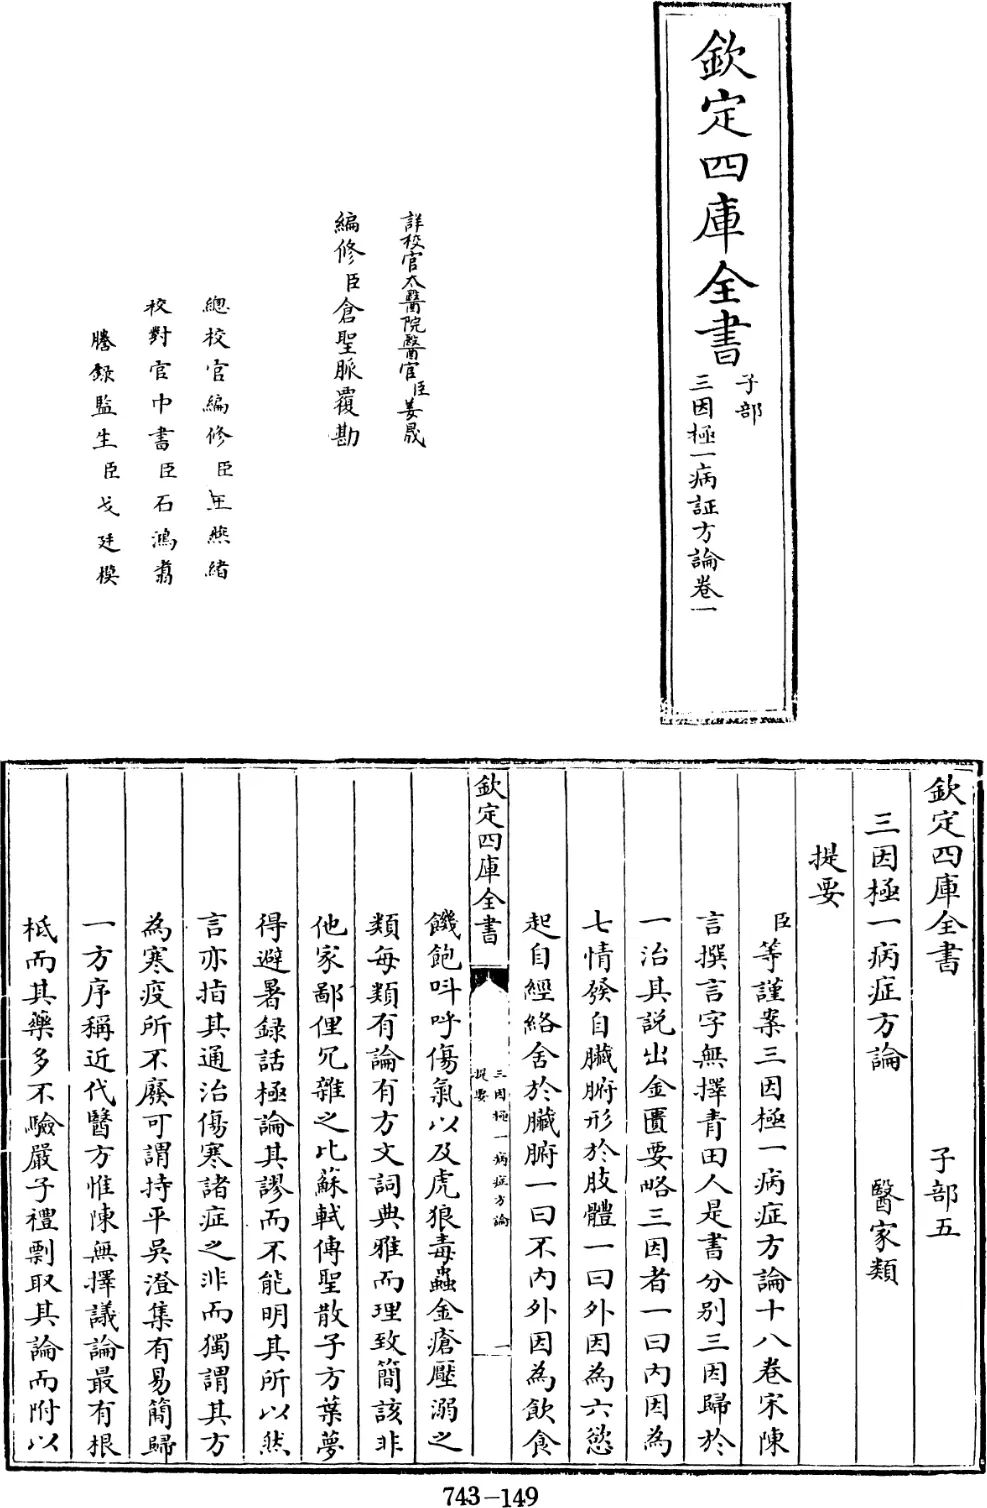 欽定四庫全書
子部
三因極一病証方論卷一
詳校官太醫院醫官臣姜晟
編修臣倉聖脈覆勘
總校官編修臣王燕緒
校對官中書臣石鴻翥
謄錄監生臣戈廷模
欽定四庫全書 子部五
三因極一病症方論 醫家類
提要
臣等謹案三因極一病症方論十八卷宋陳
言撰言字無擇青田人是書分別三因歸於
一治其説出金匱要略三因者一曰内因為
七情發自臟腑形於肢體一曰外因為六慾
起自經絡舍於臟腑一曰不内外因為飲食
欽定四庫全書
三因極一病症方論
提要
一
饑飽呌呼傷氣以及虎狼毒蟲金瘡壓溺之
類每類有論有方文詞典雅而理致簡該非
他家鄙俚冗雜之比蘇軾傳聖散子方葉夢
得避暑録話極論其謬而不能明其所以然
言亦指其通治傷寒諸症之非而獨謂其方
為寒疫所不廢可謂持平吳澄集有易簡歸
一方序稱近代醫方惟陳無擇議論最有根
柢而其藥多不驗嚴子禮剽取其論而附以
743-149